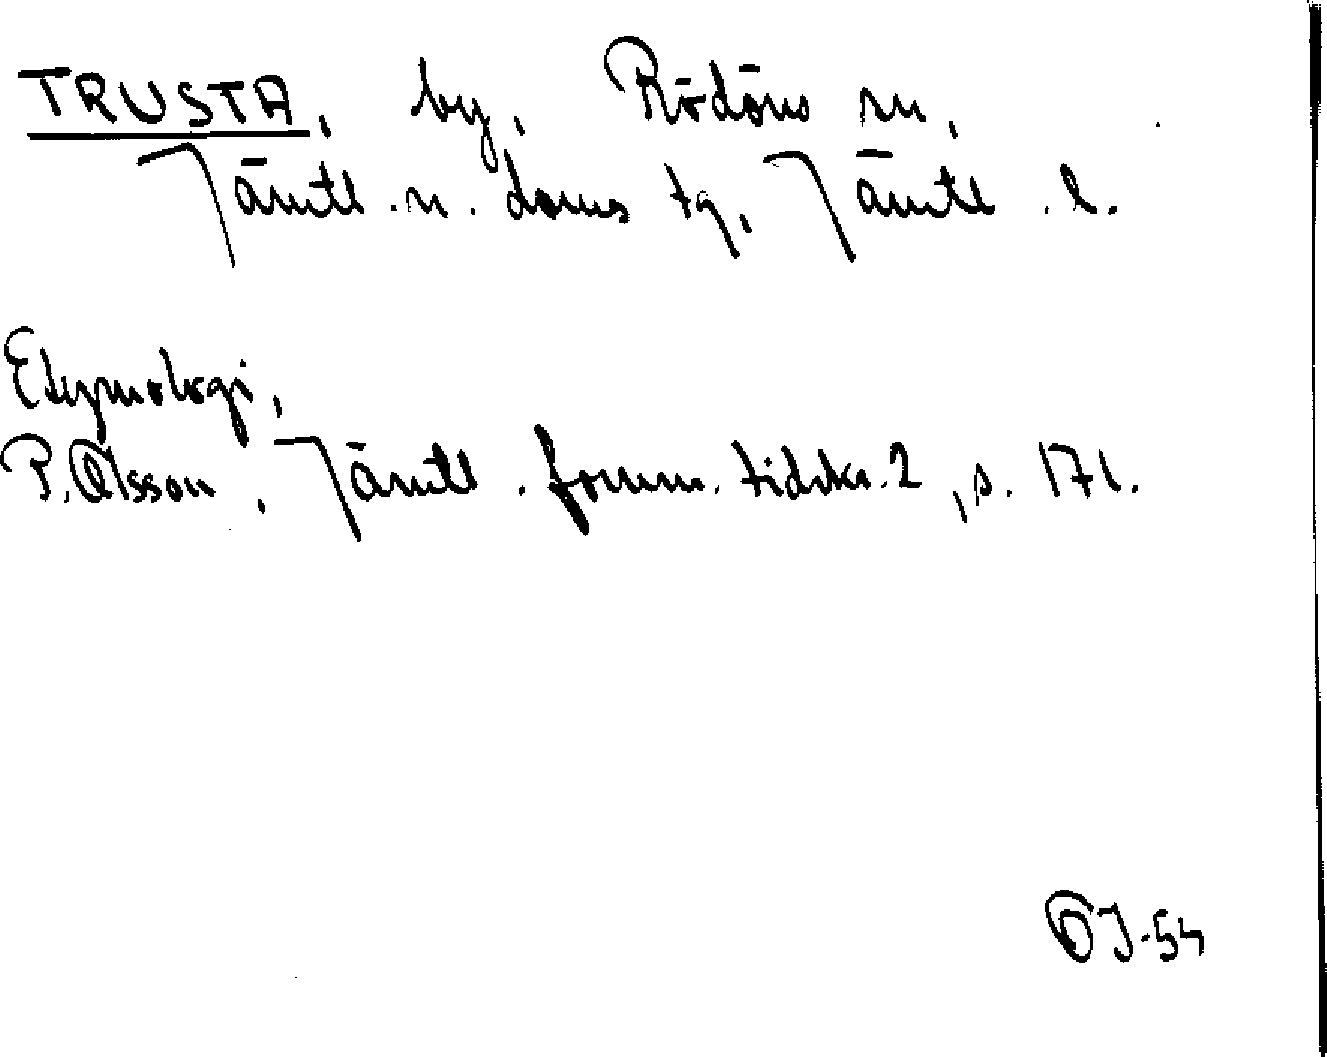 TRUSTA, by, Rödöns sn,
Jämtl. n. doms tg, Jämtl. l.
Etymologi,
P. Olsson, Jämtl. fornm. tidskr. 2, s. 171.
OJ-54